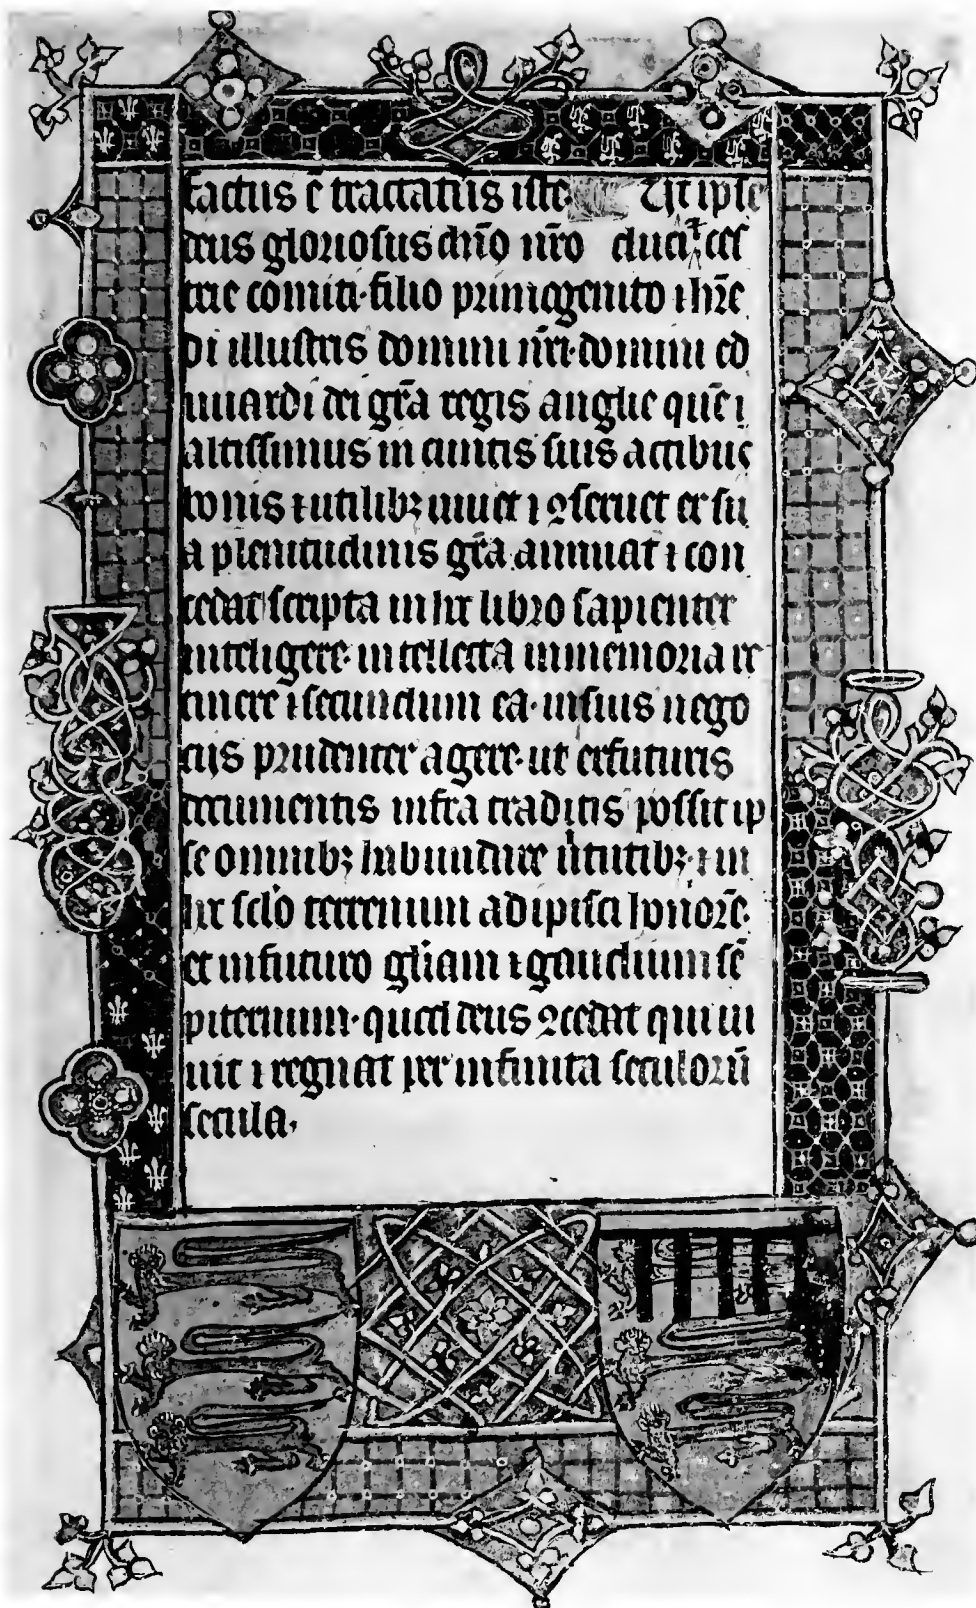 factus ē tractatus iste. Ut ipse
deus gloriosus dn̄o nr̄o duci ⁊ ces
trie comiti·filio primogenito ⁊ her̄e
di illustris domini nr̄i·domini ed
wardi dei gr̄a regis anglie quē ı
altissimus in cunctis suis actibus
bonis ⁊ utilib; iuuet ⁊ ꝯseruet et su
a plenitudinis gr̄a annuat ⁊ con
cedat scripta in hc libro sapienter
inteligere· intellecta inmemoria re
tinere ⁊ secundum ea· insuis nego
ciis prudenter agere· ut exfuturis
documentis infra traditis possit ip
se omnib; habundare ūtutib; ⁊ in
hc sclō terrenum adipisci honorē·
et infuturo gl̄iam ⁊ gaudium sē
piternum· quod deus ꝯcedat qui ui
uit ⁊ regnat per infinita seculorū
secula.